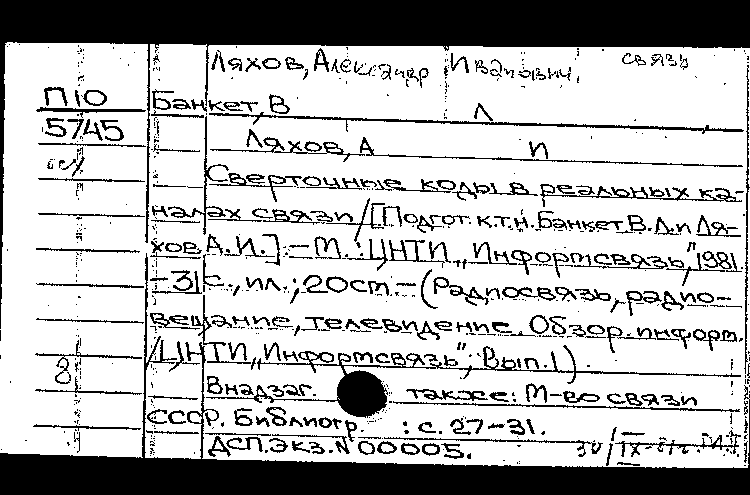 Ляхов, Александр Иванович. связь
П10 Банкет, В Л
5745 Ляхов, А И
Сверточные коды в реальных ка-
налах связи/[Подгот. к.т.н. Банкет В.Л. и Ля-
хов А.И.] - М.: ЦНТИ „Информсвязь", 1981
-31 с., ил.; 20 см. - (Радиосвязь, радио-
вещание, телевидение. Обзор. информ.
/ЦНТИ „Информсвязь"; Вып. 1).
8 В надзаг. также: М-во связи
СССР. Библиогр. : с. 27-31.
ДСП. Экз. N 00005.